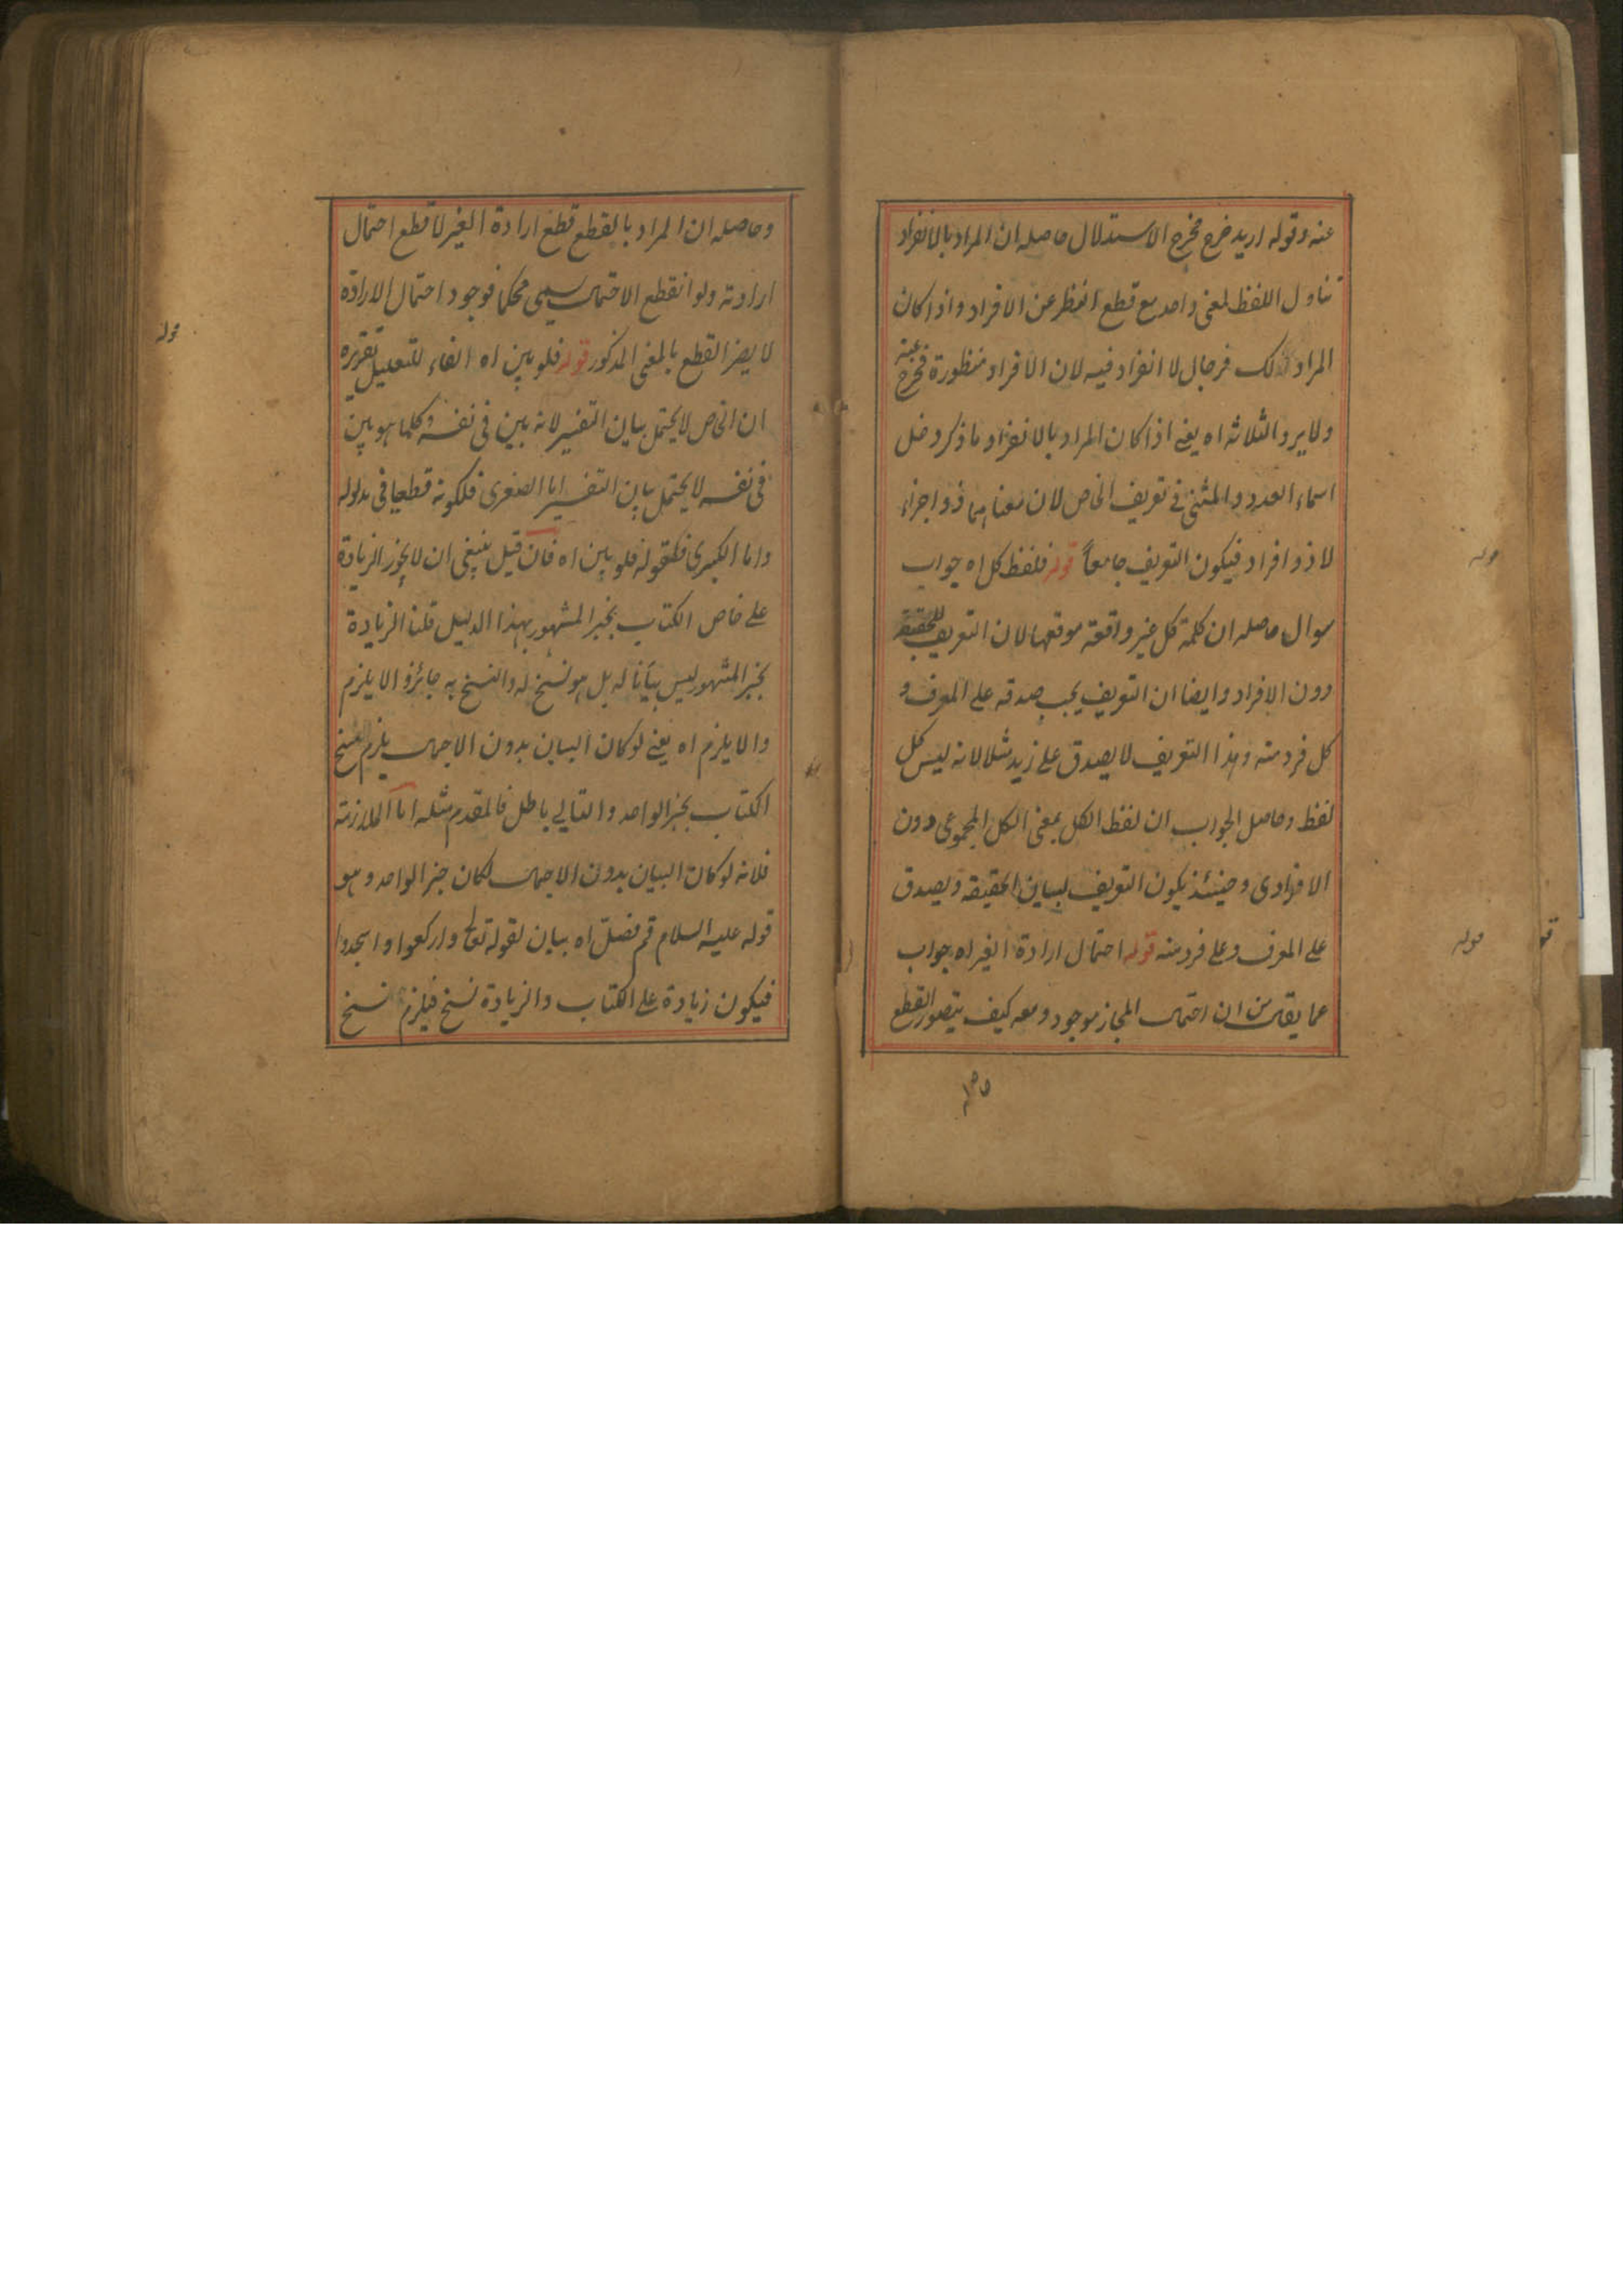 عنه وقوله اريد خرج مخرج الاستدلال حاصله ان المراد بالانفراد
تناول اللفظ لمعنى واحد مع قطع النظر عن الافراد واذا كان
المراد ذلك فرجال لا انفراد فيه لان الافراد منظورة فخرج عنه
ولا يرد الثلاثه اه يعنے اذا كان المراد بالانفراد ما ذكر دخل
اسماء العدد والمثنى فے تعريف الخاص لان معناهما ذو اجزاء
لا ذو افراد فيكون التعريف جامعاً قوله فلفظ كل اه جواب
سوال حاصله ان كلمة كل غير واقعة موقعها لان التعريف للحقيقة
دون الافراد وايضا ان التعريف يجب صدقه علے المعرف و
كل فرد منه وهذا التعريف لا يصدق علے زيد مثلا لانه ليس كل
لفظ وحاصل الجواب ان لفظ الكل بمعنى الكل المجموعى دون
الافرادى وحينئذ يكون التعريف لبيان الحقيقة ويصدق
علے المعرف وعلے فرد منه قوله احتمال ارادة الغير اه جواب
عما يقال من ان احتمال المجاز موجود ومعه كيف يتصور القطع
حاصله
وحاصله ان المراد بالقطع قطع ارادة الغير لا قطع احتمال
ارادته ولو انقطع الاحتمال يسمى محكما فوجود احتمال الارادة
لا يضر القطع بالمعنى المذكور قوله فلو بين اه الفاء للتعليل تقريره
ان الخاص لا يحتمل بيان التفسير لانه بين فى نفسه وكلما هو بين
فى نفسه لا يحتمل بيان التفسير اما الصغرى فلكونه قطعيا فى مدلوله
واما الكبرى فلقوله فلو بين اه فان قيل ينبغى ان لا يجوز الزيادة
علے خاص الكتاب بخبر المشهور بهذا الدليل قلنا الزيادة
بخبر المشهور ليس بيانا له بل هو نسخ له والنسخ به جائز و الا يلزم
والا يلزم اه يعنے لو كان البيان بدون الاجمال يلزم نسخ
الكتاب بخبر الواحد والتالے باطل فالمقدم مثله اما الملازمة
فلانه لو كان البيان بدون الاجمال لكان خبر الواحد وهو
قوله عليه السلام قم فصل اه بيان لقوله تعالى واركعوا واسجدوا
فيكون زيادة علے الكتاب والزيادة نسخ فيلزم نسخ
قوله
قوله
قوله